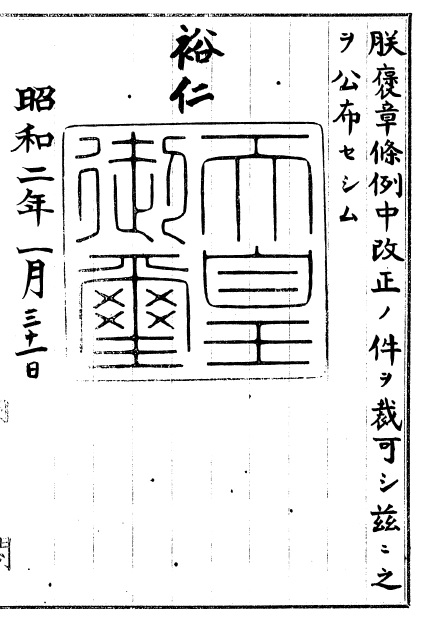 朕褒章條例中改正ノ件ヲ裁可シ茲ニ之
ヲ公布セシム
裕仁
天皇
御璽
昭和二年一月三十一日